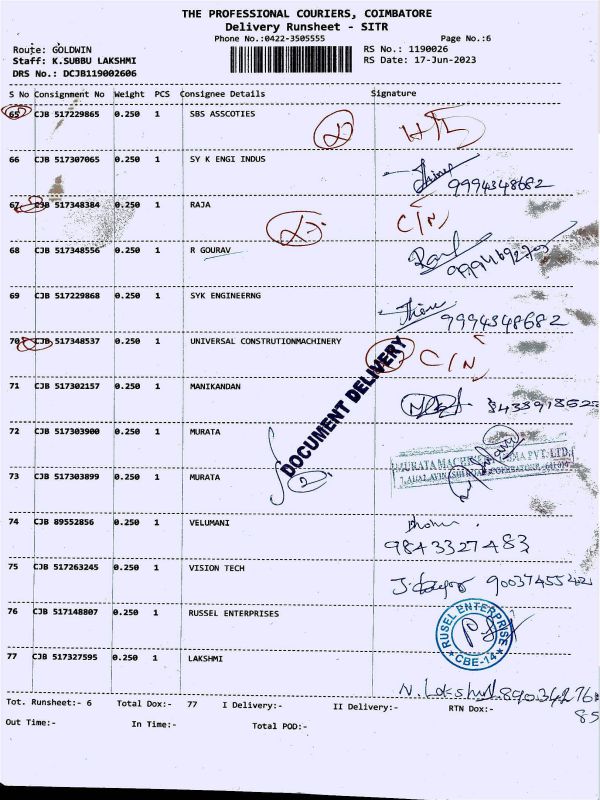 THE PROFESSIONAL COURIERS, COIMBATORE
Delivery Runsheet - SITR
Phone No.:0422-3505555 Page No.:6
Route: GOLDWIN RS No.: 1190026
Staff: K.SUBBU LAKSHMI RS Date: 17-Jun-2023
DRS No.: DCJB119002606
S No Consignment No Weight PCS Consignee Details Signature
65 CJB 517229865 0.250 1 SBS ASSCOTIES
66 CJB 517307065 0.250 1 SY K ENGI INDUS
9994348682
67 CJB 517348384 0.250 1 RAJA C/N
68 CJB 517348556 0.250 1 R GOURAV
69 CJB 517229868 0.250 1 SYK ENGINEERNG
9994348682
70 CJB 517348537 0.250 1 UNIVERSAL CONSTRUTIONMACHINERY C/N
71 CJB 517302157 0.250 1 MANIKANDAN
DOCUMENT DELIVERY
72 CJB 517303900 0.250 1 MURATA
73 CJB 517303899 0.250 1 MURATA
2
74 CJB 89552856 0.250 1 VELUMANI
9843327483
75 CJB 517263245 0.250 1 VISION TECH 9003745542
76 CJB 517148807 0.250 1 RUSSEL ENTERPRISES
RUSEL ENTERPRISE
CBE-14
77 CJB 517327595 0.250 1 LAKSHMI
N. Lakshmi 8903427685
Tot. Runsheet:- 6 Total Dox:- 77 I Delivery:- II Delivery:- RTN Dox:-
Out Time:- In Time:- Total POD:-